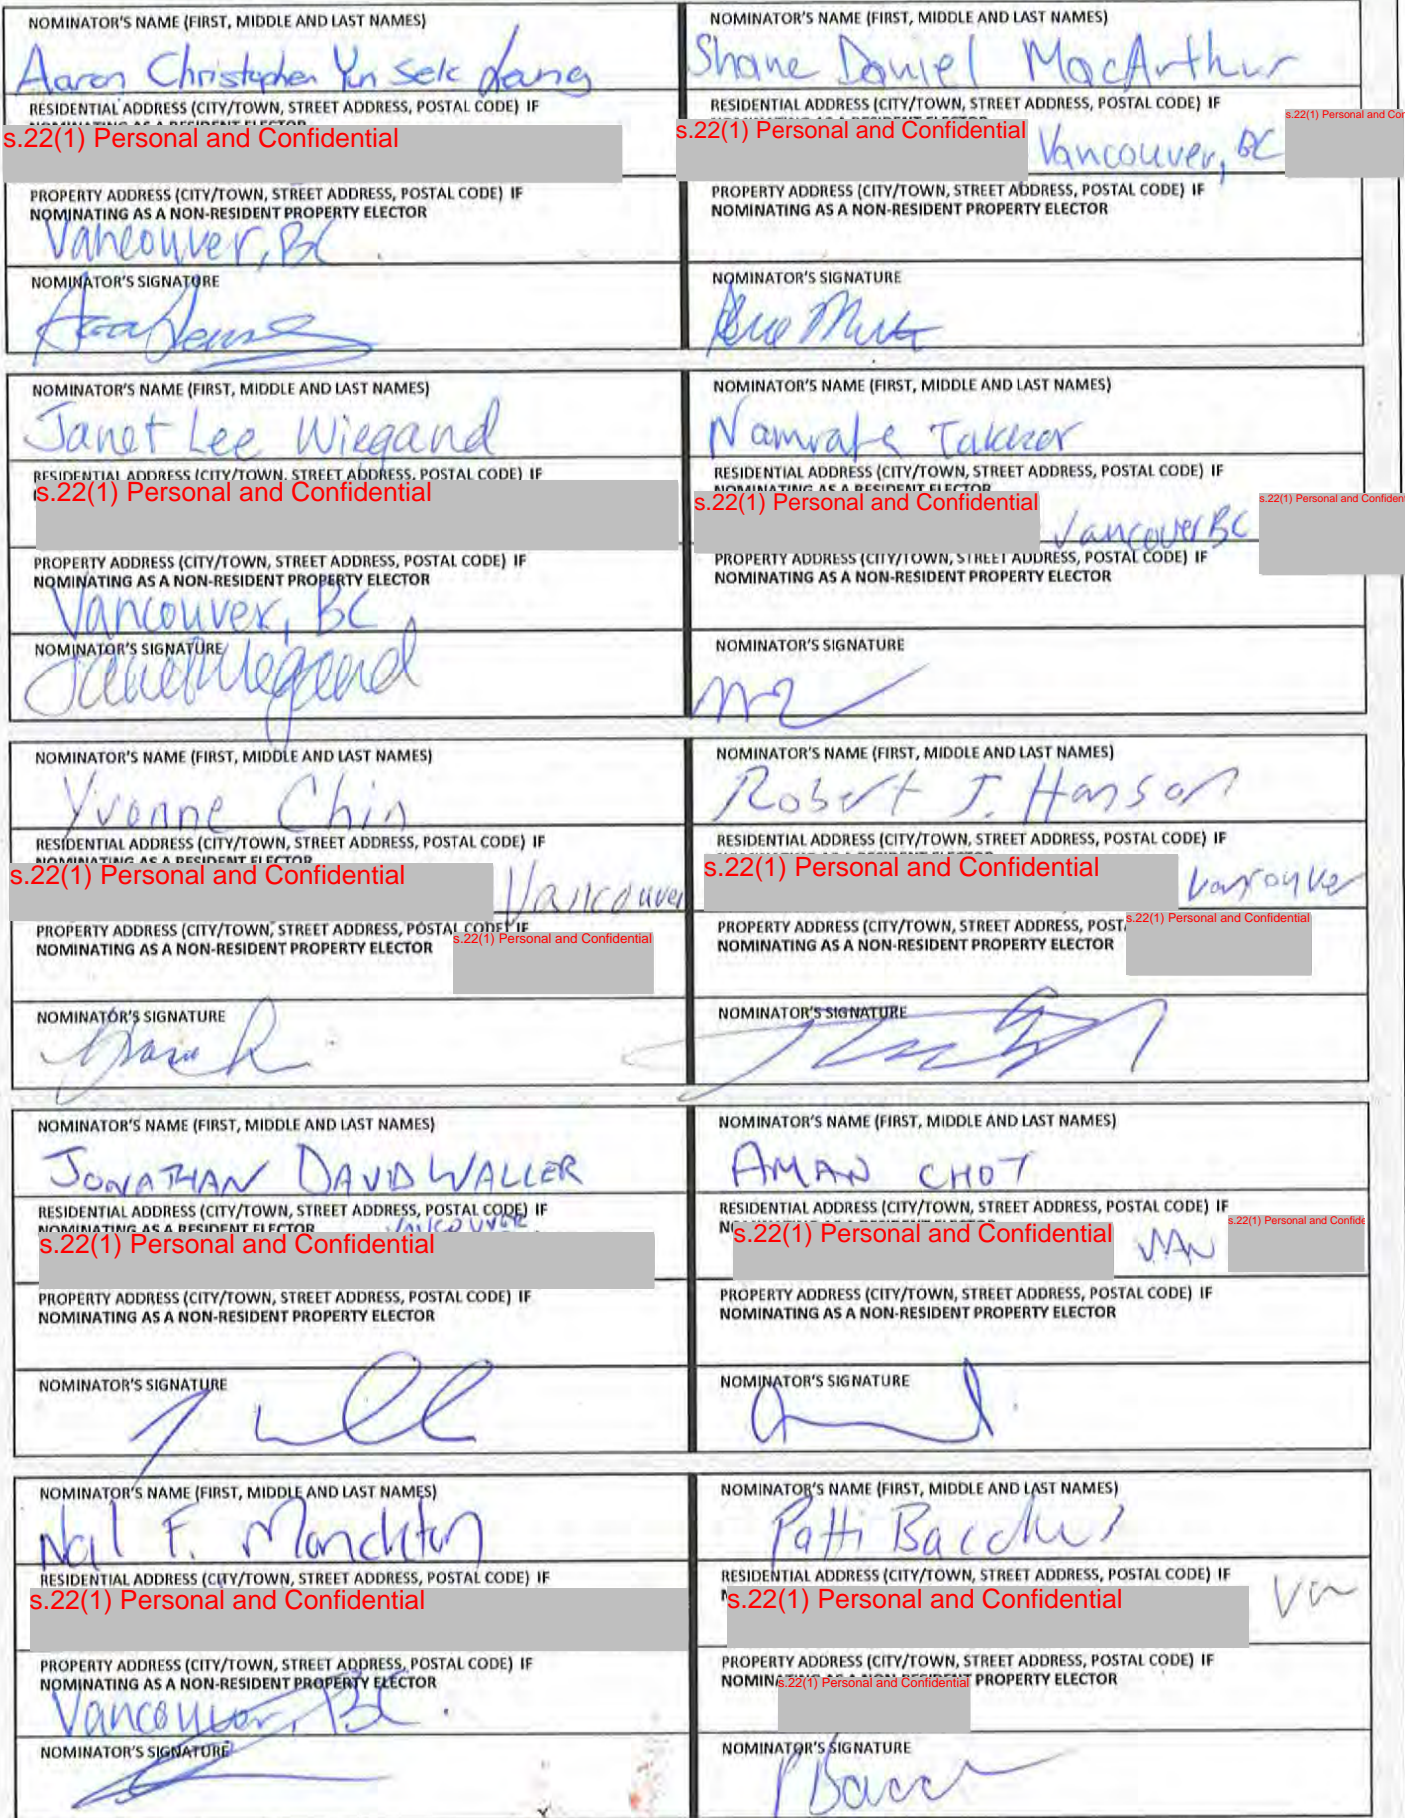 NOMINATOR'S NAME (FIRST, MIDDLE AND LAST NAMES)
Aaron Christopher Yun Sek Leung
RESIDENTIAL ADDRESS (CITY/TOWN, STREET ADDRESS, POSTAL CODE) IF
NOMINATING AS A RESIDENT ELECTOR
s.22(1) Personal and Confidential
PROPERTY ADDRESS (CITY/TOWN, STREET ADDRESS, POSTAL CODE) IF
NOMINATING AS A NON-RESIDENT PROPERTY ELECTOR
Vancouver, BC
NOMINATOR'S SIGNATURE
NOMINATOR'S NAME (FIRST, MIDDLE AND LAST NAMES)
Shane Daniel MacArthur
RESIDENTIAL ADDRESS (CITY/TOWN, STREET ADDRESS, POSTAL CODE) IF
s.22(1) Personal and Confidential Vancouver, BC s.22(1) Personal and Con
PROPERTY ADDRESS (CITY/TOWN, STREET ADDRESS, POSTAL CODE) IF
NOMINATING AS A NON-RESIDENT PROPERTY ELECTOR
NOMINATOR'S SIGNATURE
NOMINATOR'S NAME (FIRST, MIDDLE AND LAST NAMES)
Janet Lee Wiegand
RESIDENTIAL ADDRESS (CITY/TOWN, STREET ADDRESS, POSTAL CODE) IF
s.22(1) Personal and Confidential
PROPERTY ADDRESS (CITY/TOWN, STREET ADDRESS, POSTAL CODE) IF
NOMINATING AS A NON-RESIDENT PROPERTY ELECTOR
Vancouver, BC
NOMINATOR'S SIGNATURE
Janet Wiegand
NOMINATOR'S NAME (FIRST, MIDDLE AND LAST NAMES)
RESIDENTIAL ADDRESS (CITY/TOWN, STREET ADDRESS, POSTAL CODE) IF
NOMINATING AS A RESIDENT ELECTOR
s.22(1) Personal and Confidential Vancouver BC s.22(1) Personal and Confident
PROPERTY ADDRESS (CITY/TOWN, STREET ADDRESS, POSTAL CODE) IF
NOMINATING AS A NON-RESIDENT PROPERTY ELECTOR
NOMINATOR'S SIGNATURE
NOMINATOR'S NAME (FIRST, MIDDLE AND LAST NAMES)
Yvonne Chin
RESIDENTIAL ADDRESS (CITY/TOWN, STREET ADDRESS, POSTAL CODE) IF
NOMINATING AS A RESIDENT ELECTOR
s.22(1) Personal and Confidential Vancouver
PROPERTY ADDRESS (CITY/TOWN, STREET ADDRESS, POSTAL CODE) IF
NOMINATING AS A NON-RESIDENT PROPERTY ELECTOR s.22(1) Personal and Confidential
NOMINATOR'S SIGNATURE
NOMINATOR'S NAME (FIRST, MIDDLE AND LAST NAMES)
Robert J. Hanson
RESIDENTIAL ADDRESS (CITY/TOWN, STREET ADDRESS, POSTAL CODE) IF
s.22(1) Personal and Confidential Vancouver
PROPERTY ADDRESS (CITY/TOWN, STREET ADDRESS, POST s.22(1) Personal and Confidential
NOMINATING AS A NON-RESIDENT PROPERTY ELECTOR
NOMINATOR'S SIGNATURE
NOMINATOR'S NAME (FIRST, MIDDLE AND LAST NAMES)
JONATHAN DAVID WALLER
RESIDENTIAL ADDRESS (CITY/TOWN, STREET ADDRESS, POSTAL CODE) IF
NOMINATING AS A RESIDENT ELECTOR VANCOUVER
s.22(1) Personal and Confidential
PROPERTY ADDRESS (CITY/TOWN, STREET ADDRESS, POSTAL CODE) IF
NOMINATING AS A NON-RESIDENT PROPERTY ELECTOR
NOMINATOR'S SIGNATURE
NOMINATOR'S NAME (FIRST, MIDDLE AND LAST NAMES)
AMAN CHOT
RESIDENTIAL ADDRESS (CITY/TOWN, STREET ADDRESS, POSTAL CODE) IF
s.22(1) Personal and Confidential VAN s.22(1) Personal and Confide
PROPERTY ADDRESS (CITY/TOWN, STREET ADDRESS, POSTAL CODE) IF
NOMINATING AS A NON-RESIDENT PROPERTY ELECTOR
NOMINATOR'S SIGNATURE
NOMINATOR'S NAME (FIRST, MIDDLE AND LAST NAMES)
Neil F. Monckton
RESIDENTIAL ADDRESS (CITY/TOWN, STREET ADDRESS, POSTAL CODE) IF
s.22(1) Personal and Confidential
PROPERTY ADDRESS (CITY/TOWN, STREET ADDRESS, POSTAL CODE) IF
NOMINATING AS A NON-RESIDENT PROPERTY ELECTOR
Vancouver, BC.
NOMINATOR'S SIGNATURE
NOMINATOR'S NAME (FIRST, MIDDLE AND LAST NAMES)
Patti Bacchus
RESIDENTIAL ADDRESS (CITY/TOWN, STREET ADDRESS, POSTAL CODE) IF
s.22(1) Personal and Confidential Van
PROPERTY ADDRESS (CITY/TOWN, STREET ADDRESS, POSTAL CODE) IF
NOMIN s.22(1) Personal and Confidential PROPERTY ELECTOR
NOMINATOR'S SIGNATURE